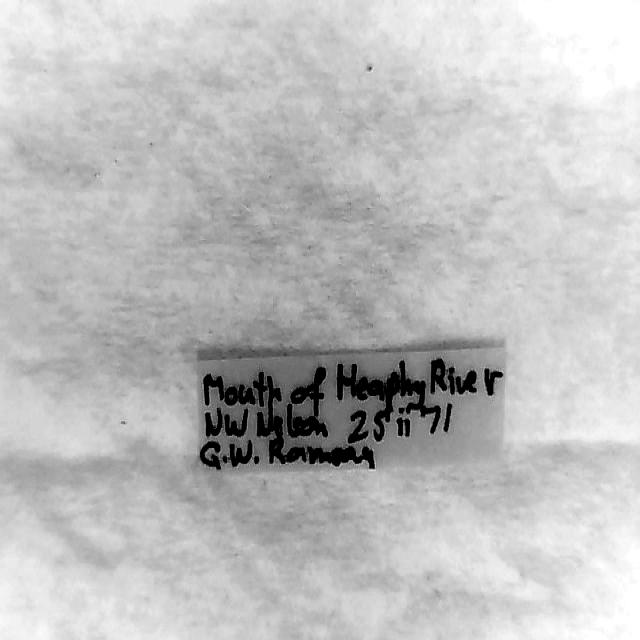 Mouth of Heaphy River
NW Nelson 25 ii 71
G.W. Ramsay